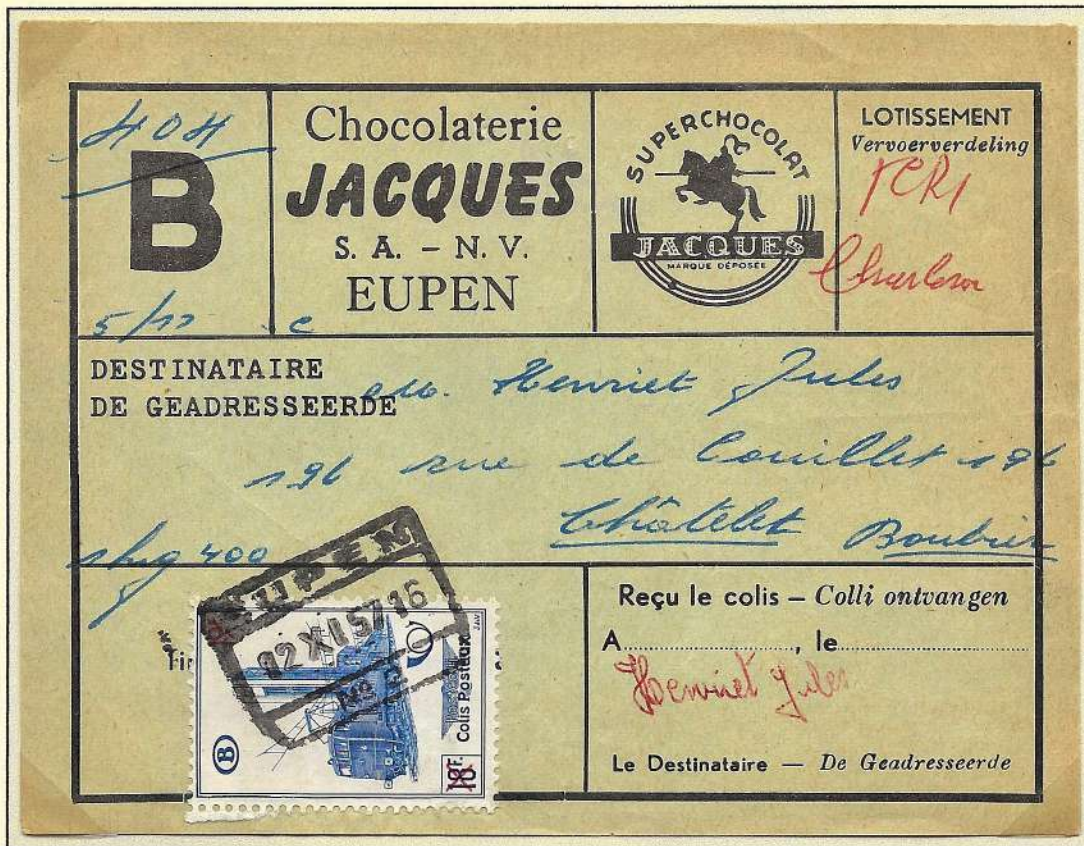 404
B
5/11 c
Chocolaterie
JACQUES
S. A. - N. V.
EUPEN
SUPERCHOCOLAT
JACQUES
MARQUE DÉPOSÉE
LOTISSEMENT
Vervoerverdeling
DESTINATAIRE
DE GEADRESSEERDE
M. Henriet Jules
196 rue de Couillet 196
Châtelet Boubier
1 kg 400
EUPEN
12 XI 57 16
No 2
B
Colis Postaux
F.
18
Reçu le colis – Colli ontvangen
A...................., le....................
Henriet Jules
Le Destinataire — De Geadresseerde